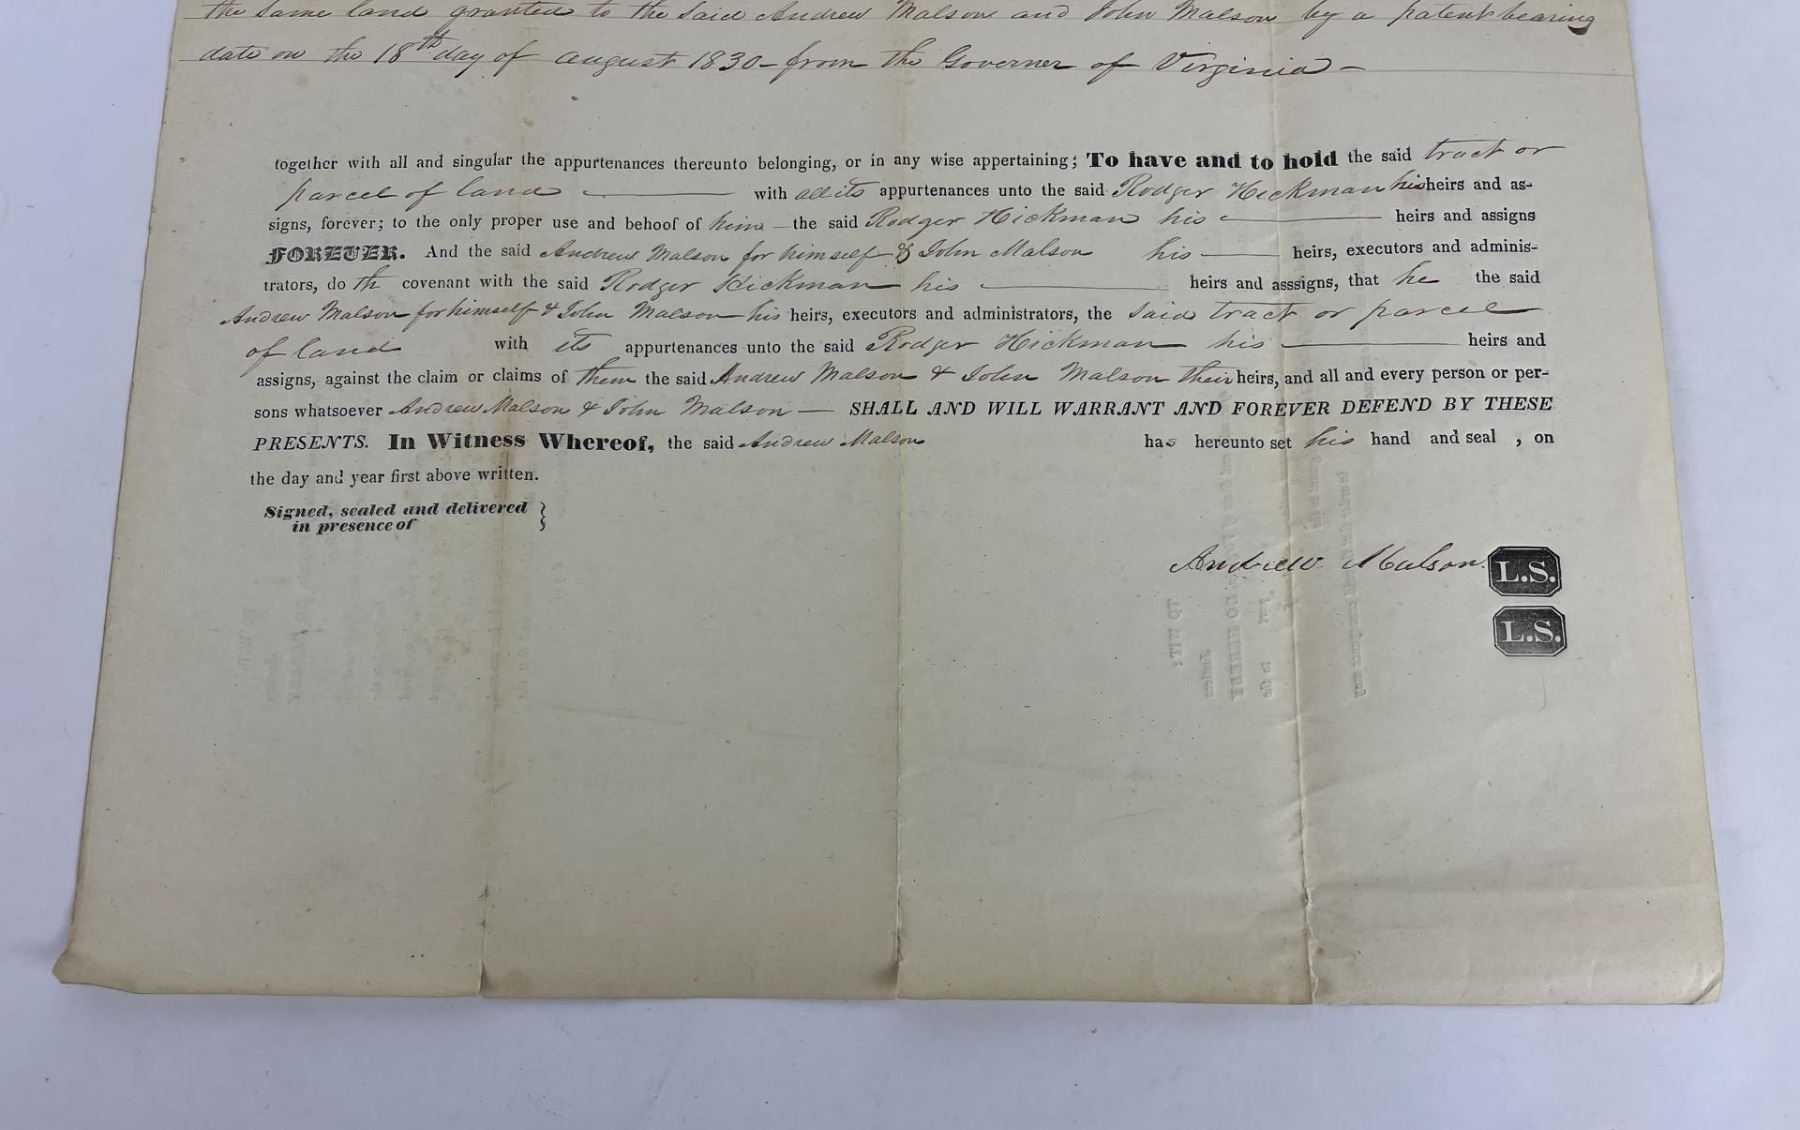 the same land granted to the said Andrew Malson and John Malson by a patent bearing
date on the 18th day of august 1830 - from the Governer of Virginia -
together with all and singular the appurtenances thereunto belonging, or in any wise appertaining; To have and to hold the said tract or
parcel of land with all its appurtenances unto the said Rodger Hickman his heirs and as-
signs, forever; to the only proper use and behoof of him the said Rodger Hickman his heirs and assigns
FOREVER. And the said Andrew Malson for himself & John Malson his heirs, executors and adminis-
trators, do th covenant with the said Rodger Hickman his heirs and asssigns, that he the said
Andrew Malson for himself & John Malson his heirs, executors and administrators, the said tract or parcel
of land with its appurtenances unto the said Rodger Hickman his heirs and
assigns, against the claim or claims of them the said Andrew Malson & John Malson their heirs, and all and every person or per-
sons whatsoever Andrew Malson & John Malson — SHALL AND WILL WARRANT AND FOREVER DEFEND BY THESE
PRESENTS. In Witness Whereof, the said Andrew Malson has hereunto set his hand and seal , on
the day and year first above written.
Signed, sealed and delivered
in presence of
Andrew Malson L.S.
L.S.